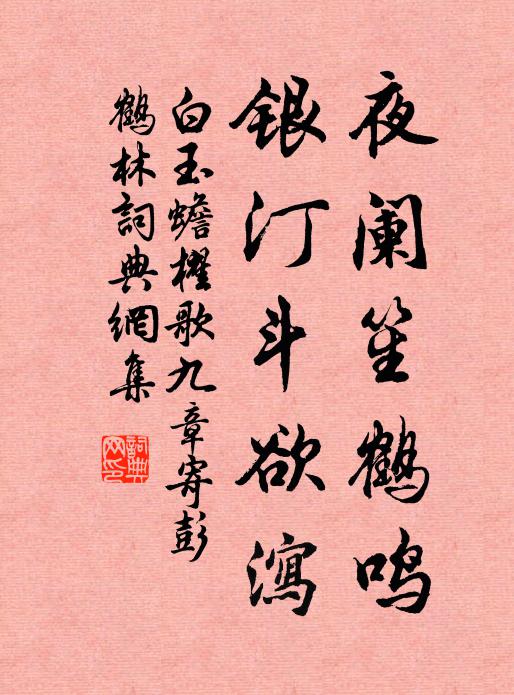 夜阑笙鹤鸣
银汀斗欲泻
白玉蟾櫂歌九章寄彭
鶴林詞典網集
詞典网印